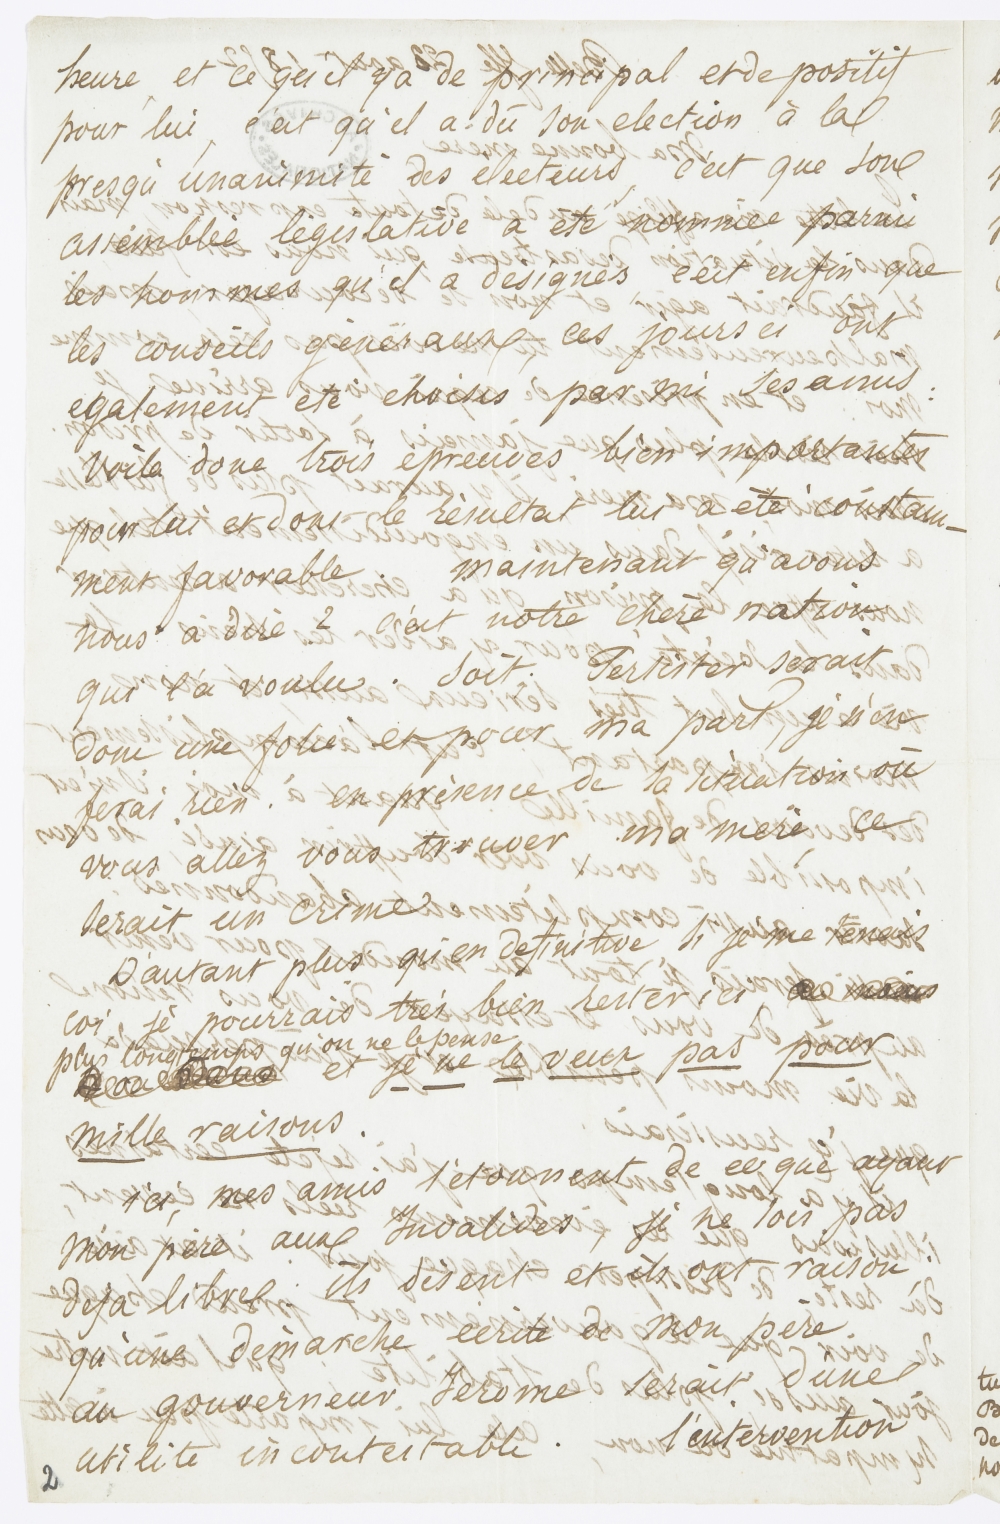 heure, et ce qu'il y a de principal et de positif
pour lui, c'est qu'il a dû son election à la
presqu'unanimité des électeurs, c'est que son
assemblée législative a été nommée parmi
les hommes qu'il a designés, c'est enfin que
les conseils généraux, ces jours ci ont
egalement été choisis parmi ses amis.
Voila donc trois épreuves bien importantes
pour lui et dont le résultat lui a été constam-
ment favorable. maintenant qu'avons
nous a dire? c'est notre chere nation
qui l'a voulu. soit. Persister serait
donc une folie et pour ma part, je n'en
ferai rien. en présence de la situation où
vous allez vous trouver ma mere, ce
serait un crime
D'autant plus qu'en definitive si je me tenais
coi, je pourrais très bien rester ici,
plus longtemps qu'on ne le pense
et je ne le veux pas pour
mille raisons.
ici, mes amis s'étonnent de ce que ayant
mon père aux Invalides, je ne sois pas
deja libre. ils disent et ils ont raison,
qu'une démarche écrite de mon père
au gouverneur Jerome serait d'une
utilité incontestable. l'intervention
2
tu
De